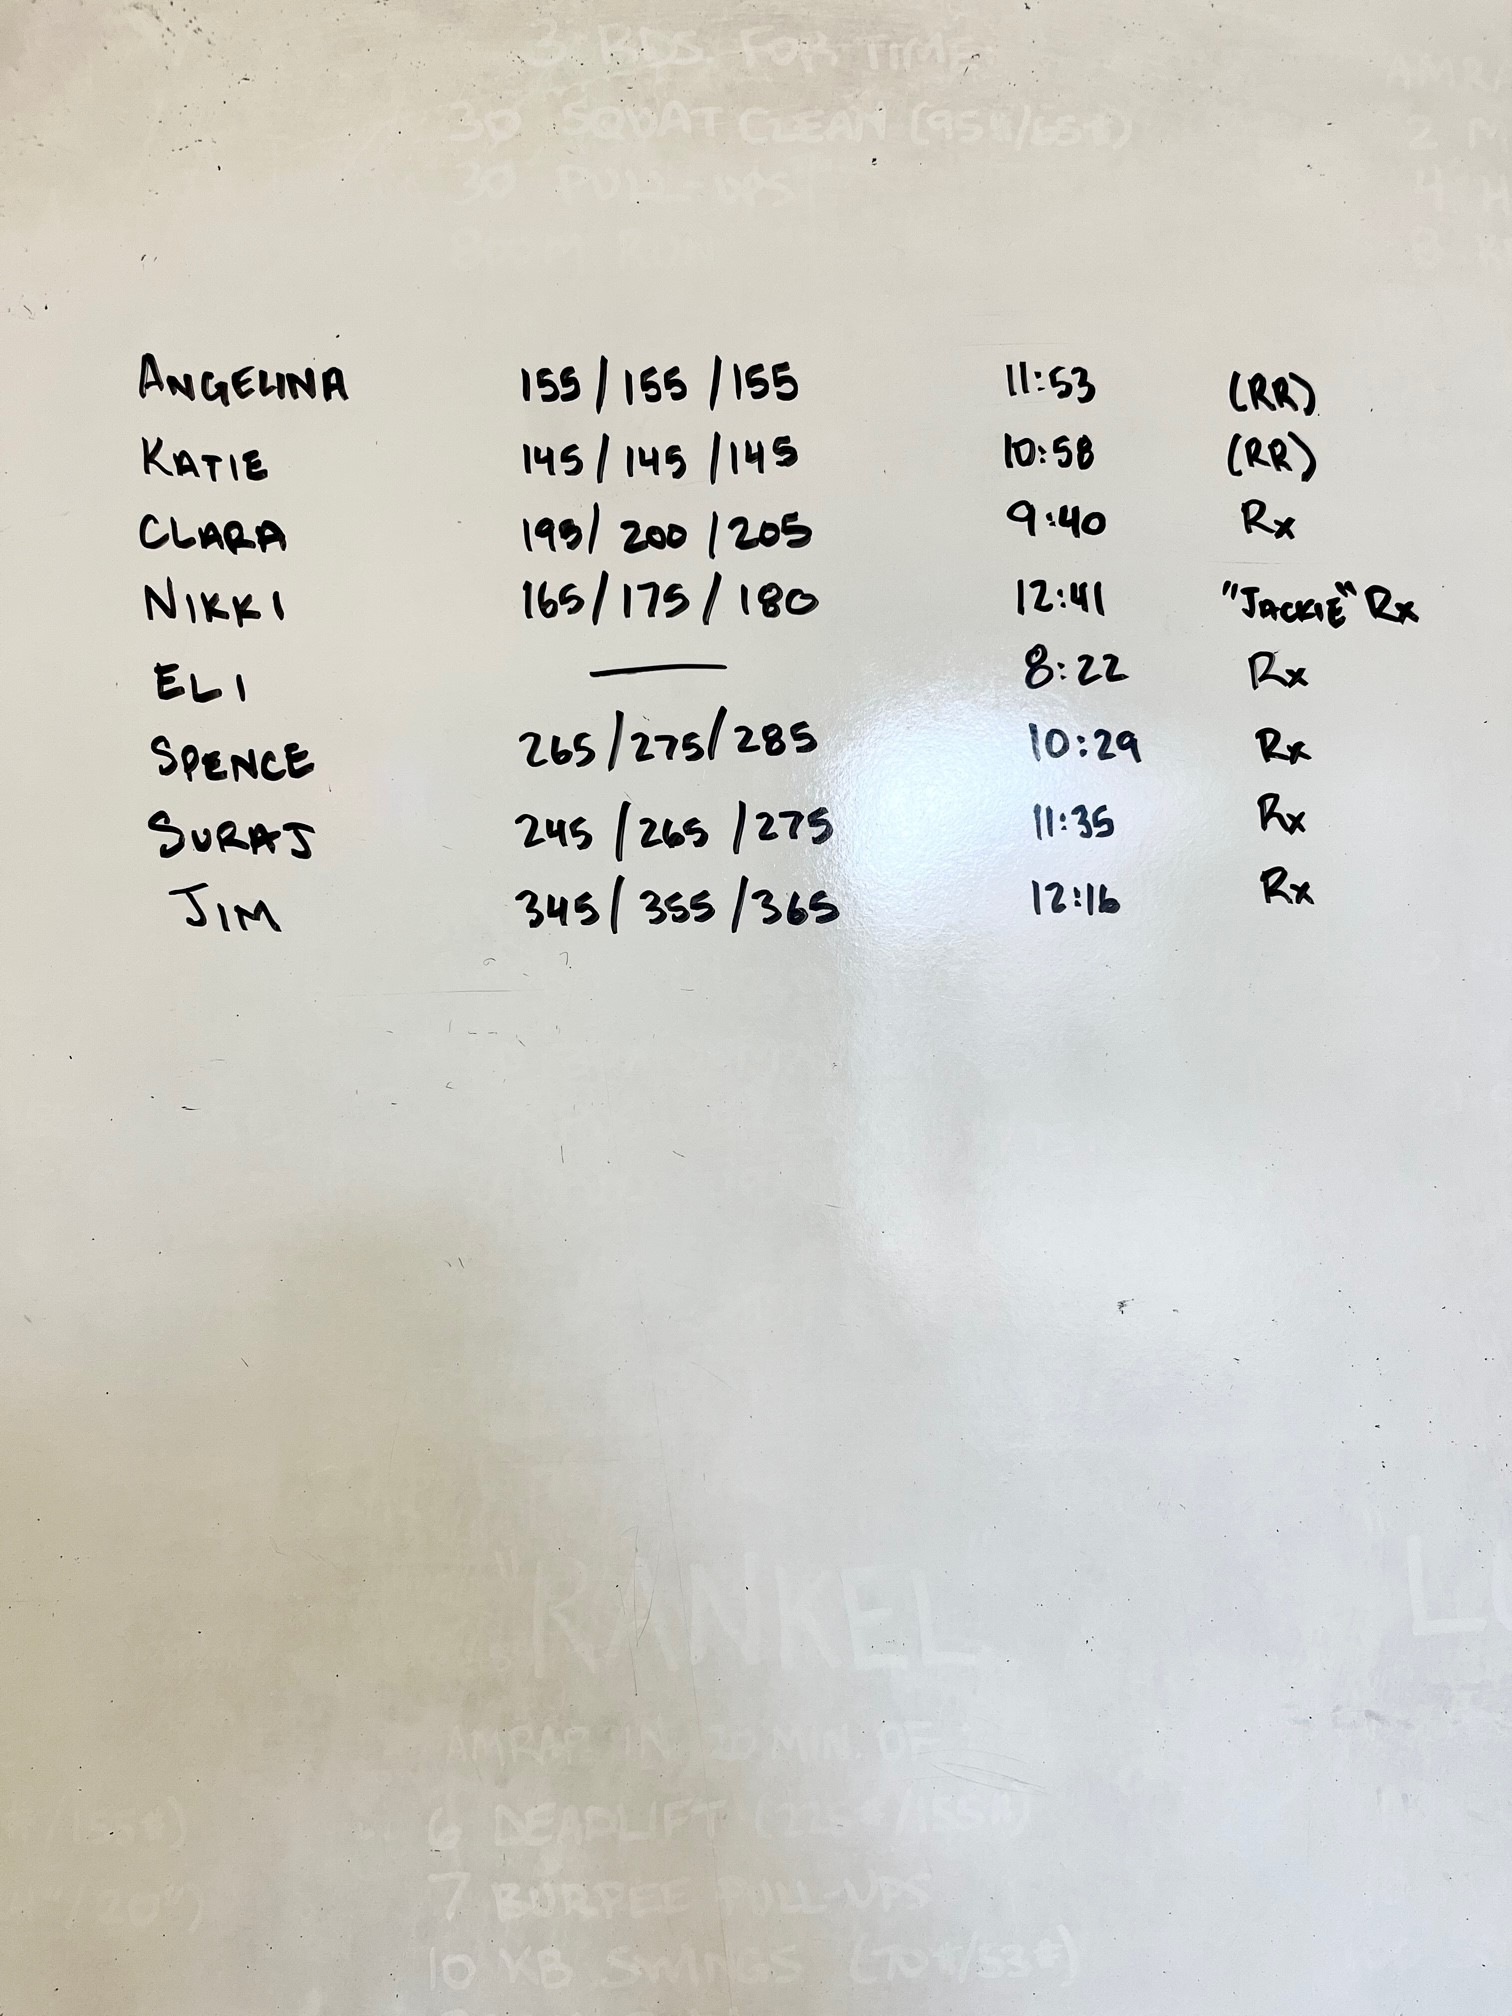 3 RDS. FOR TIME:
30 SQUAT CLEAN (95#/65#)
30 PULL-UPS
800M RUN
AMRA
2 M
4 H
8 K
ANGELINA 155/155/155 11:53 (RR)
KATIE 145/145/145 10:58 (RR)
CLARA 195/200/205 9:40 Rx
NIKKI 165/175/180 12:41 "JACKIE" Rx
ELI — 8:22 Rx
SPENCE 265/275/285 10:29 Rx
SURAJ 245/265/275 11:35 Rx
JIM 345/355/365 12:16 Rx
"RANKEL
AMRAP IN 20 MIN. OF
6 DEADLIFT (225#/155#)
7 BURPEE PULL-UPS
10 KB SWINGS (70#/53#)
/155#)
/20")
"LU